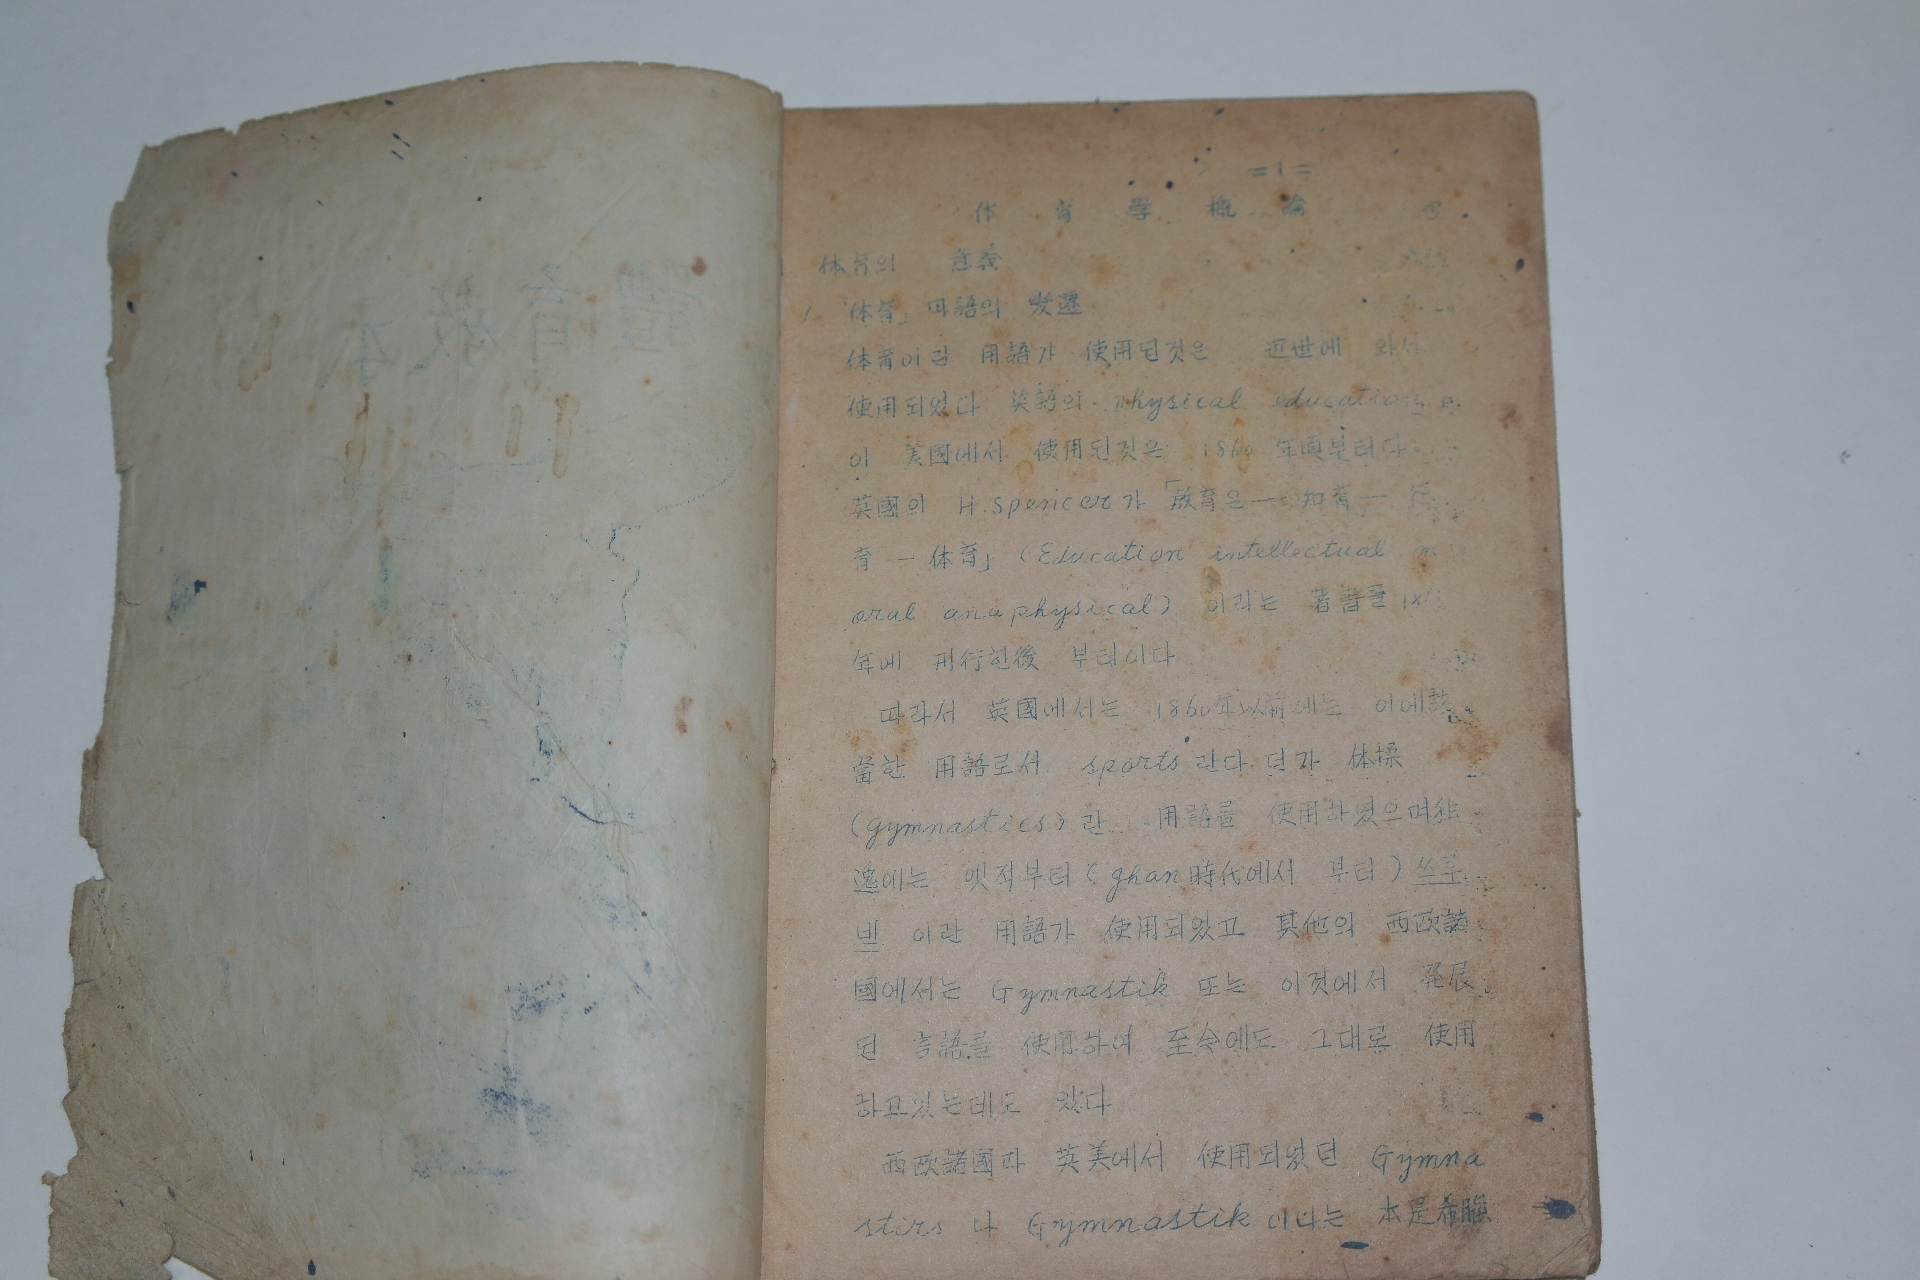 =1=
体 育 學 概 論
体育의 意義
1 「体育」用語의 変遷
体育이란 用語가 使用된것은 近世에 와서
使用되었다 英語의 physical education
이 美國에서 使用된것은 1860 年頃부터다
英國의 H.spencer가 「敎育은 — 知育 —
育 — 体育」 (Education intellectual m
oral anaphysical) 이라는 著書를
年에 刊行한後 부터이다
따라서 英國에서는 1860年以前에는 이에該
當한 用語로서 sports 란다 던가 体操
(gymnastics)란 用語를 使用하였으며 独
逸에는 옛적부터 (ghan時代에서 부터)
이란 用語가 使用되었고 其他의 西欧諸
國에서는 Gymnastik 또는 이것에서 発展
된 言語를 使用하여 至今에도 그대로 使用
하고있는데도 있다
西欧諸國과 英美에서 使用되었던 Gymna
stirs 나 Gymnastik 이나는 本是希臘
體育敎本